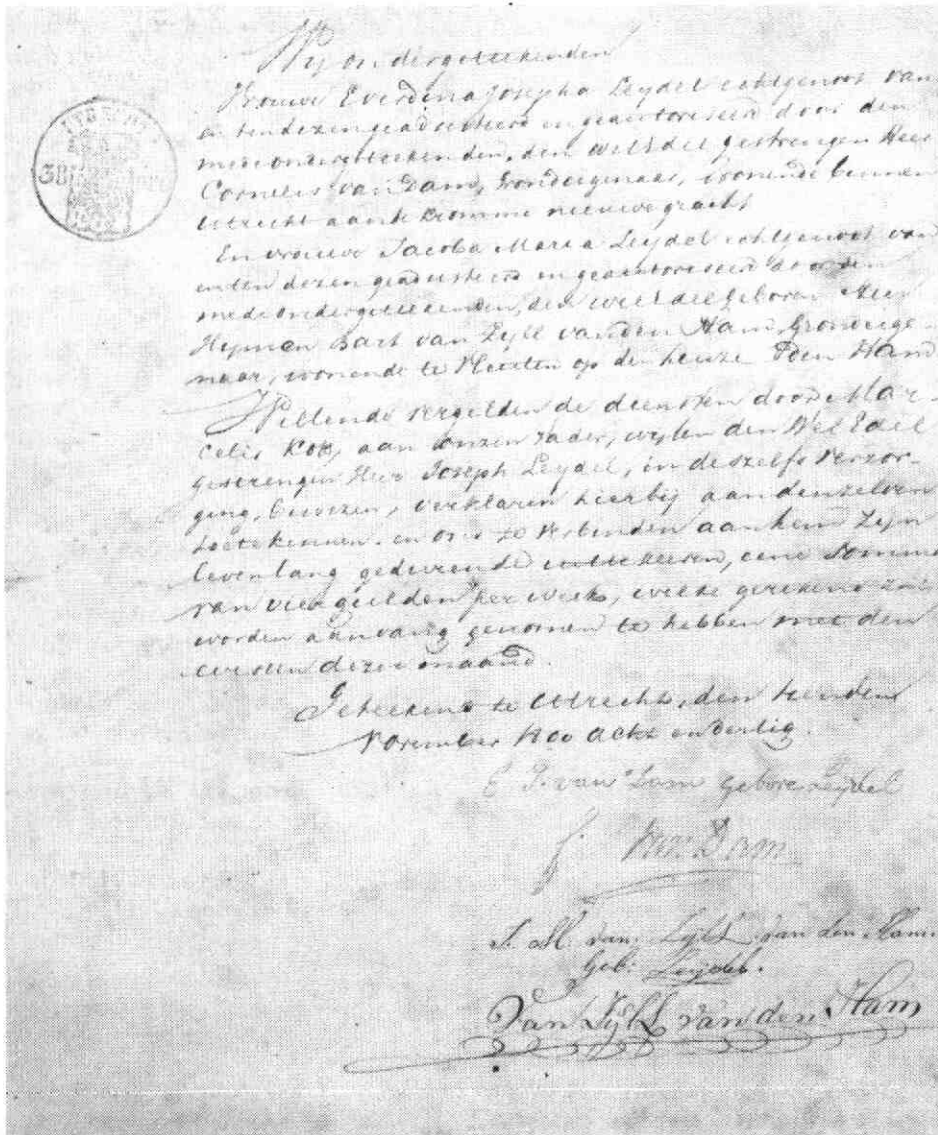 Wij ondergeteekenden
Vrouwe Everdina Josepha Leydel echtgenoot van
en ten dezen geadsisteerd en geautoriseerd door den
mede ondergeteekenden, den Weledelgestrengen Heer
Cornelis van Dam, Grondeigenaar, wonende binnen
Utrecht aan de Kromme nieuwe gracht
En vrouwe Jacoba Maria Leydel echtgenoot van
en ten dezen geadsisteerd en geautoriseerd door den
mede ondergeteekenden, den weledelgeboren Heer
Hijmen Bart van Zyll van den Ham, Grondeige-
naar, wonende te Vleuten op den huize Den Ham
Willende vergelden de diensten door Mar-
celis Kok, aan onzen vader, wijlen den Wel Edel
Gestrengen Heer Joseph Leydel, in deszelfs verzor-
ging, bewezen, verklaren hierbij aan denzelven
toetekennen en ons te verbinden aan hem zijn
leven lang gedurende uittekeeren, eene somma
van vier gulden per week, welke gerekend zal
worden aanvang genomen te hebben met den
eersten dezer maand.
Geteekend te Utrecht, den
November 1800 Acht en dertig.
E J. van Dam gebore Leydel
van Dam
J. M. van Zyll van den Ham.
Geb: Leydel.
Van Zyll van den Ham
38